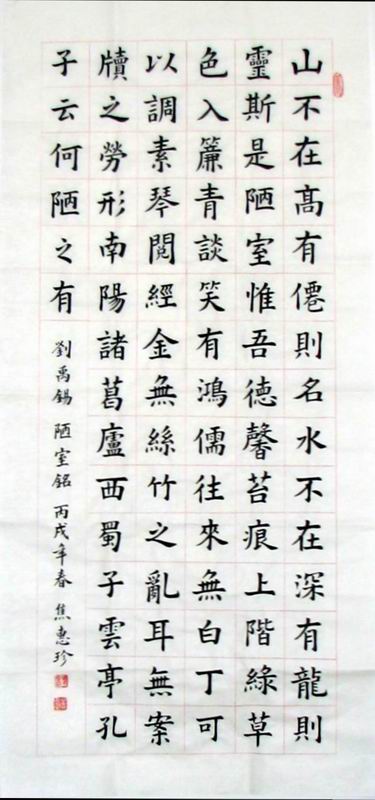 山不在髙有僊則名水不在深有龍則
靈斯是陋室惟吾德馨苔痕上階綠草
色入簾青談笑有鴻儒往來無白丁可
以調素琴閱經金無絲竹之亂耳無案
牘之勞形南陽諸葛廬西蜀子雲亭孔
子云何陋之有 劉禹錫 陋室銘 丙戌年春 焦惠珍